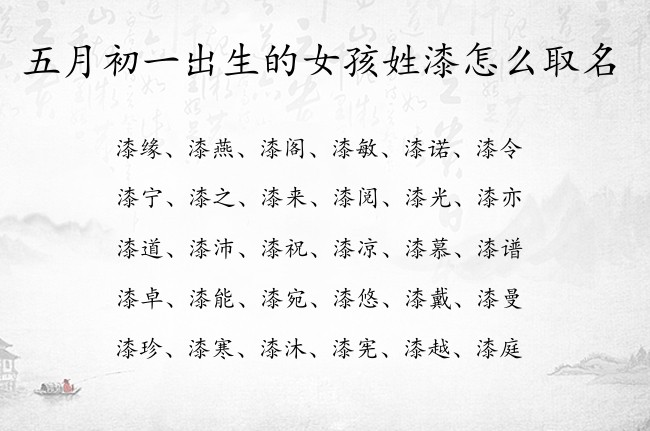 五月初一出生的女孩姓漆怎么取名
漆缘、漆燕、漆阁、漆敏、漆诺、漆令
漆宁、漆之、漆来、漆阅、漆光、漆亦
漆道、漆沛、漆祝、漆凉、漆慕、漆谱
漆卓、漆能、漆宛、漆悠、漆戴、漆曼
漆珍、漆寒、漆沐、漆宪、漆越、漆庭